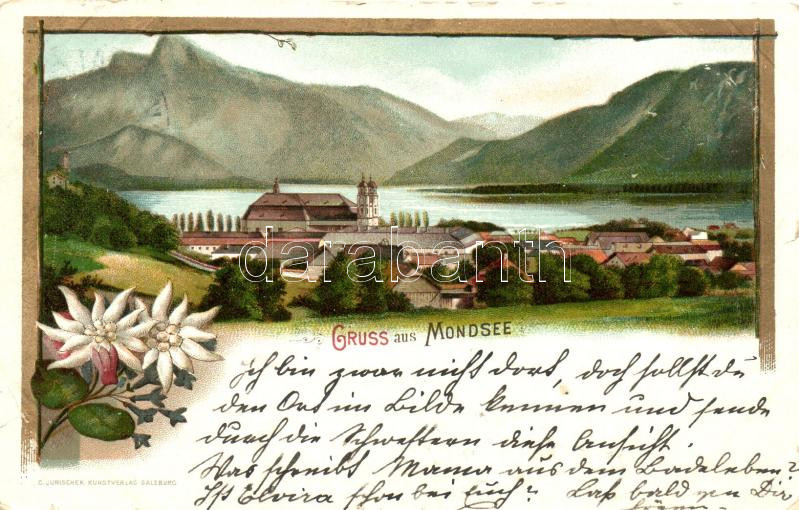 darabanth
GRUSS aus MONDSEE
Ich bin zwar nicht dort, doch sollst du
den Ort im Bilde kennen und sende
durch die Schwestern diese Ansicht.
Was schreibt Mama aus dem Badeleben?
Ist Elvira schon bei Euch? Laß bald von Dir
hören
C. JURISCHEK, KUNSTVERLAG SALZBURG.